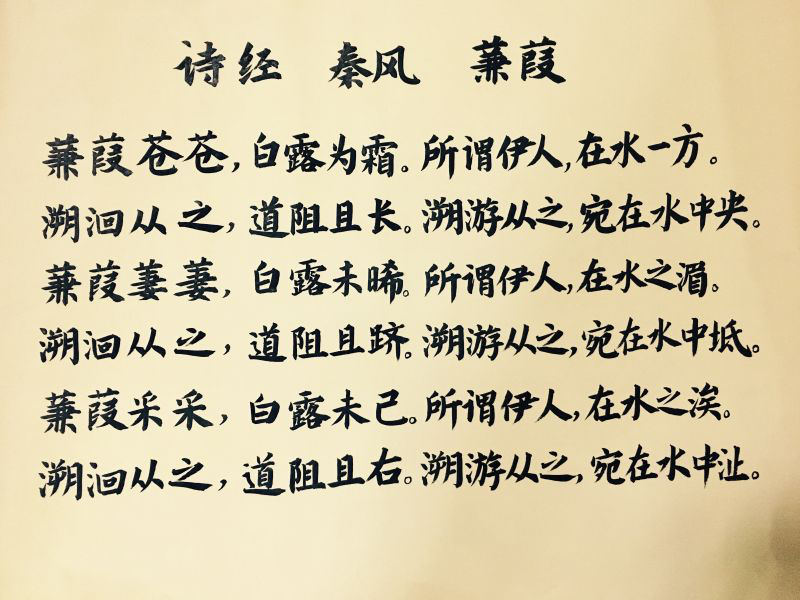 诗经 秦风 蒹葭
蒹葭苍苍，白露为霜。所谓伊人，在水一方。
溯洄从之，道阻且长。溯游从之，宛在水中央。
蒹葭萋萋，白露未晞。所谓伊人，在水之湄。
溯洄从之，道阻且跻。溯游从之，宛在水中坻。
蒹葭采采，白露未己。所谓伊人，在水之涘。
溯洄从之，道阻且右。溯游从之，宛在水中沚。